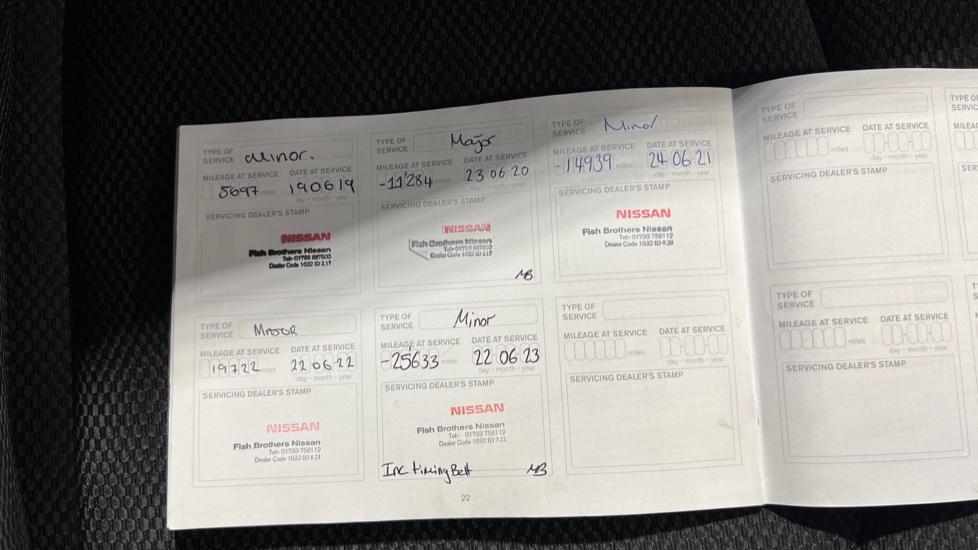 TYPE OF SERVICE Minor.
MILEAGE AT SERVICE DATE AT SERVICE
5697 miles 190619
day - month - year
SERVICING DEALER'S STAMP
NISSAN
Fish Brothers Nissan
Dealer Code 1632 ID 2.17
TYPE OF SERVICE Major
MILEAGE AT SERVICE DATE AT SERVICE
-11'284 miles 23 06 20
day - month - year
SERVICING DEALER'S STAMP
NISSAN
Fish Brothers Nissan
MB
TYPE OF SERVICE Minor
MILEAGE AT SERVICE DATE AT SERVICE
-14939 miles 24 06 21
day - month - year
SERVICING DEALER'S STAMP
NISSAN
Fish Brothers Nissan
Tel- 01793 758112
TYPE OF SERVICE
MILEAGE AT SERVICE DATE AT SERVICE
miles
day - month - year
SERVICING DEALER'S STAMP
TYPE OF SERVICE MAJOR
MILEAGE AT SERVICE DATE AT SERVICE
19722 miles 220622
day - month - year
SERVICING DEALER'S STAMP
NISSAN
Fish Brothers Nissan
Tel- 01793 758112
TYPE OF SERVICE Minor
MILEAGE AT SERVICE DATE AT SERVICE
-25633 miles 22 06 23
day - month - year
SERVICING DEALER'S STAMP
NISSAN
Fish Brothers Nissan
Tel- 01793 758112
Inc timing Belt MB
TYPE OF SERVICE
MILEAGE AT SERVICE DATE AT SERVICE
miles
day - month - year
SERVICING DEALER'S STAMP
TYPE OF SERVICE
MILEAGE AT SERVICE DATE AT SERVICE
miles
day - month - year
SERVICING DEALER'S STAMP
22